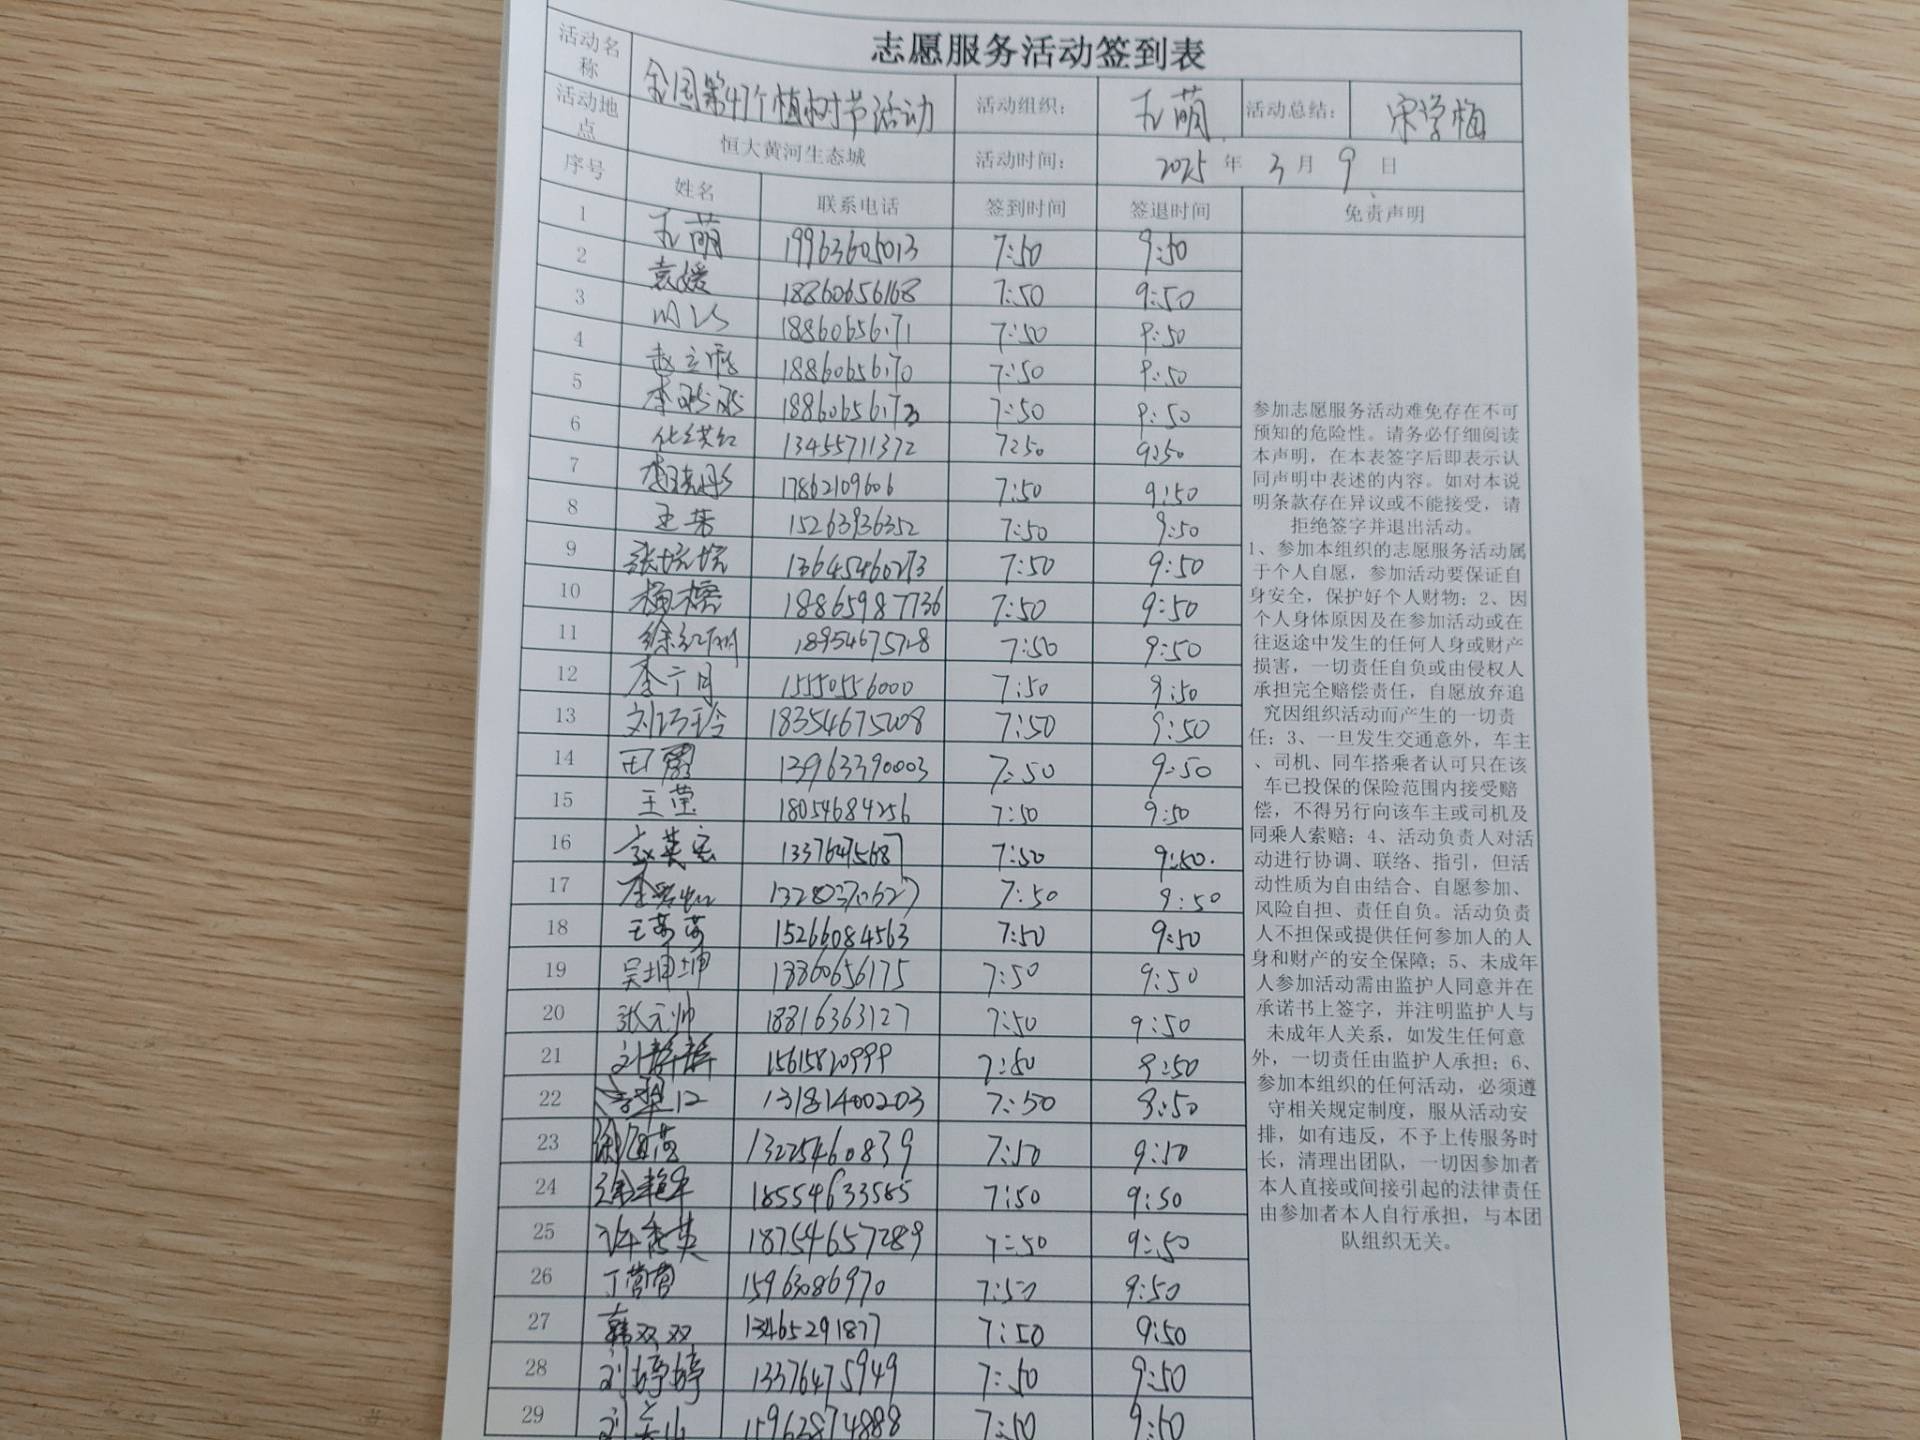 志愿服务活动签到表
活动名称 全国第47个植树节活动 活动组织： 孔萌 活动总结： 宋学梅
活动地点 恒大黄河生态城 活动时间： 2025 年 3 月 9 日
序号 姓名 联系电话 签到时间 签退时间 免责声明
1 孔萌 19963605013 7:50 9:50
2 袁媛 18860656168 7:50 9:50
3 18860656171 7:50 9:50
4 18860656170 7:50 9:50
5 7:50 9:50
6 13455711372 7:50 9:50
7 17862109606 7:50 9:50
8 15263936352 7:50 9:50
9 7:50 9:50
10 18865987736 7:50 9:50
11 7:50 9:50
12 15550556000 7:50 9:50
13 7:50 9:50
14 13963390003 7:50 9:50
15 王莹 18054684256 7:50 9:50
16 赵英宏 13376475687 7:50 9:50.
17 13280370627 7:50 9:50
18 15266084563 7:50 9:50
19 吴坤坤 7:50 9:50
20 张元帅 18816363127 7:50 9:50
21 刘静静 15615820999 7:50 9:50
22 13181400203 7:50 9:50
23 13225460839 7:50 9:50
24 18554633585 7:50 9:50
25 许秀英 18754657289 7:50 9:50
26 丁营营 15963086970 7:50 9:50
27 韩双双 13465291877 7:50 9:50
28 刘婷婷 13376475949 7:50 9:50
29 15962874888 7:50 9:50
参加志愿服务活动难免存在不可
预知的危险性。请务必仔细阅读
本声明，在本表签字后即表示认
同声明中表述的内容。如对本说
明条款存在异议或不能接受，请
拒绝签字并退出活动。
1、参加本组织的志愿服务活动属
于个人自愿，参加活动要保证自
身安全，保护好个人财物；2、因
个人身体原因及在参加活动或在
往返途中发生的任何人身或财产
损害，一切责任自负或由侵权人
承担完全赔偿责任，自愿放弃追
究因组织活动而产生的一切责
任；3、一旦发生交通意外，车主
、司机、同车搭乘者认可只在该
车已投保的保险范围内接受赔
偿，不得另行向该车主或司机及
同乘人索赔；4、活动负责人对活
动进行协调、联络、指引，但活
动性质为自由结合、自愿参加、
风险自担、责任自负。活动负责
人不担保或提供任何参加人的人
身和财产的安全保障；5、未成年
人参加活动需由监护人同意并在
承诺书上签字，并注明监护人与
未成年人关系，如发生任何意
外，一切责任由监护人承担；6、
参加本组织的任何活动，必须遵
守相关规定制度，服从活动安
排，如有违反，不予上传服务时
长，清理出团队，一切因参加者
本人直接或间接引起的法律责任
由参加者本人自行承担，与本团
队组织无关。